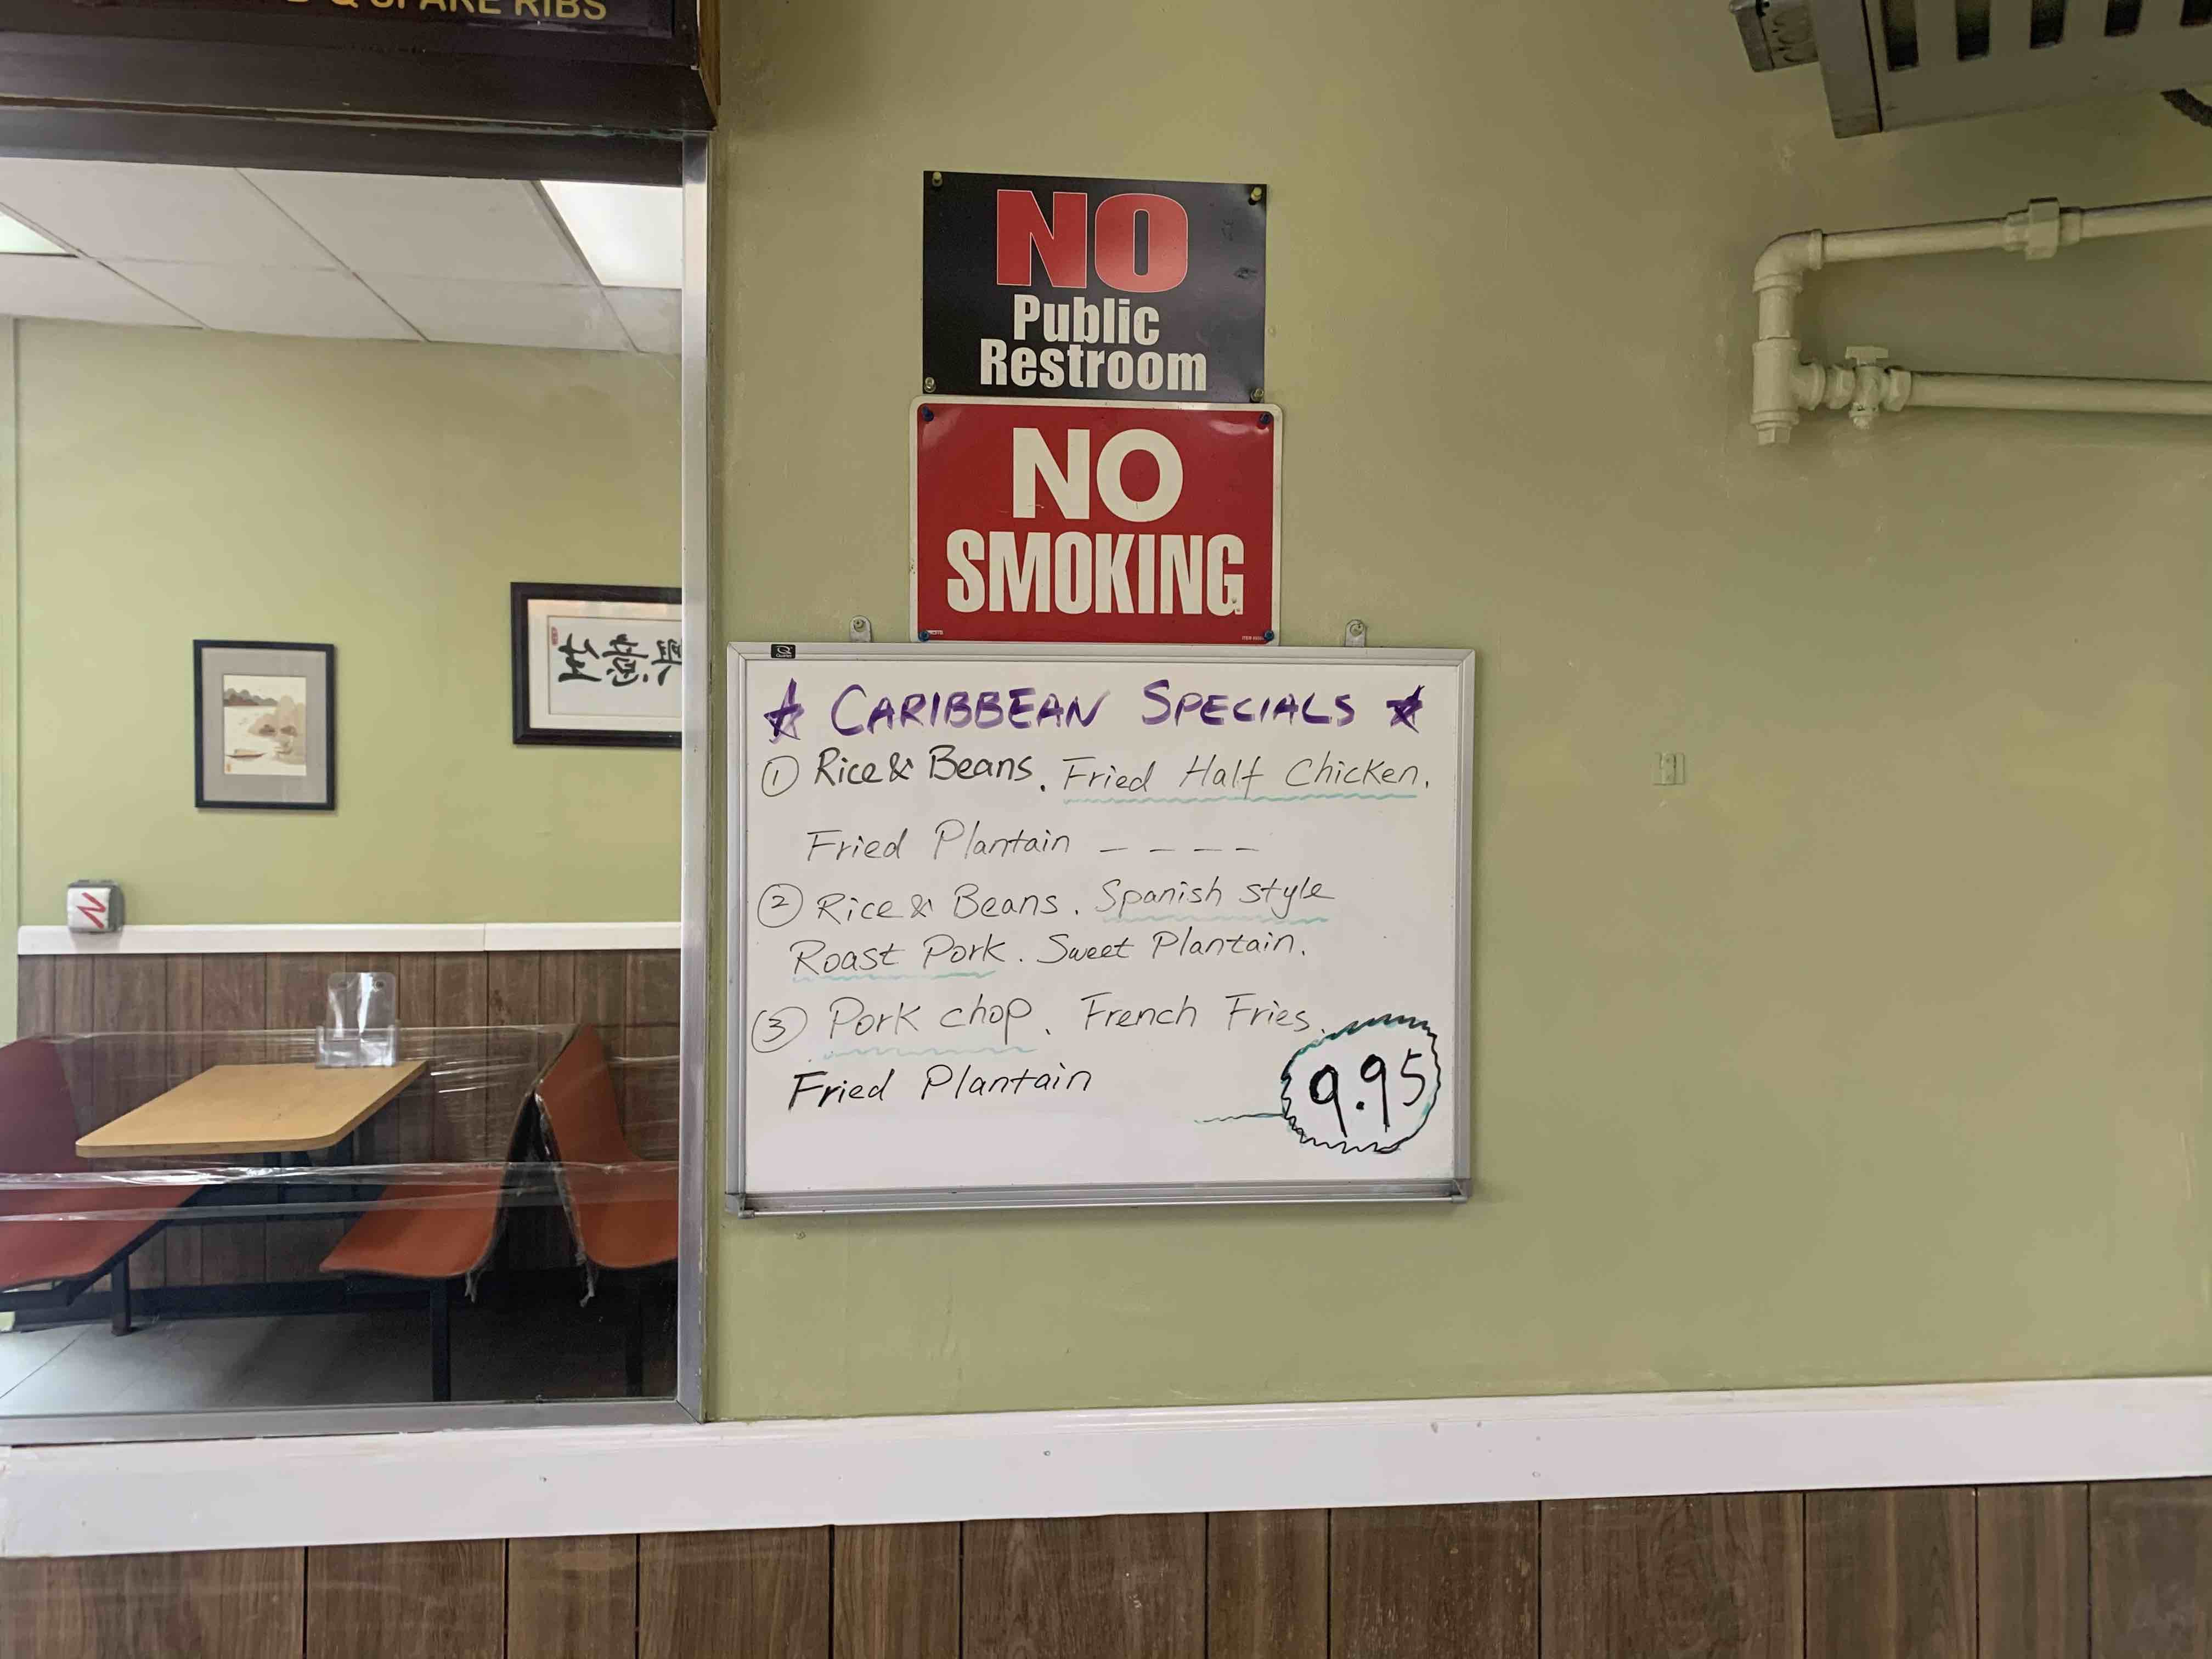 & SPARE RIBS
NO
Public
Restroom
NO
SMOKING
☆ CARIBBEAN SPECIALS ☆
① Rice & Beans. Fried Half Chicken.
Fried Plantain - - - -
② Rice & Beans. Spanish style
Roast Pork. Sweet Plantain.
③ Pork chop. French Fries.
Fried Plantain
9.95
生意興